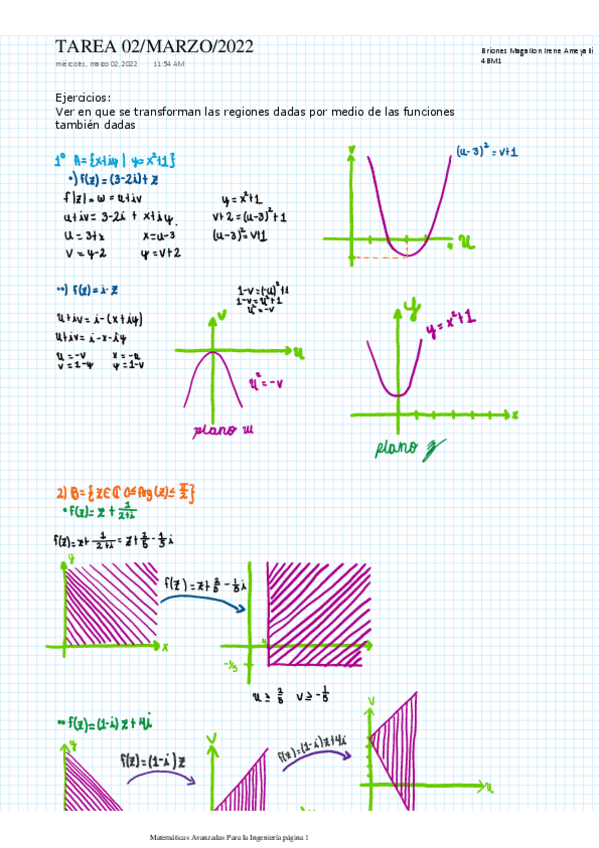 TAREA 02/MARZO/2022
miércoles, marzo 02, 2022 11:54 AM
Briones Magallon Irene Ameyalli
4BM1
Ejercicios:
Ver en que se transforman las regiones dadas por medio de las funciones
también dadas
1° A={x+iy | y=x²+1}
•) f(z)=(3-2i)+z
f(z)=ω=u+iv
u+iv=3-2i+x+iy
u=3+x x=u-3
v=y-2 y=v+2
y=x²+1
v+2=(u-3)²+1
(u-3)²=v+1
v
(u-3)²=v+1
u
••) f(z)=i-z
u+iv=i-(x+iy)
u+iv=i-x-iy
u=-x x=-u
v=1-y y=1-v
1-v=(-u)²+1
1-v=u²+1
u²=-v
v
u
u²=-v
plano w
y
y=x²+1
x
plano z
2) B={z∈ℂ 0≤Arg(z)≤π/2}
•f(z)=z+1/(2+i)
f(z)=z+1/(2+i)=z+2/5-1/5i
y
x
f(z)=z+2/5-1/5i
-1/5
u≥2/5 v≥-1/5
••f(z)=(1-i)z+4i
y
f(z)=(1-i)z
v
f(z)=(1-i)z+4i
v
u
Matemáticas Avanzadas Para la Ingeniería página 1